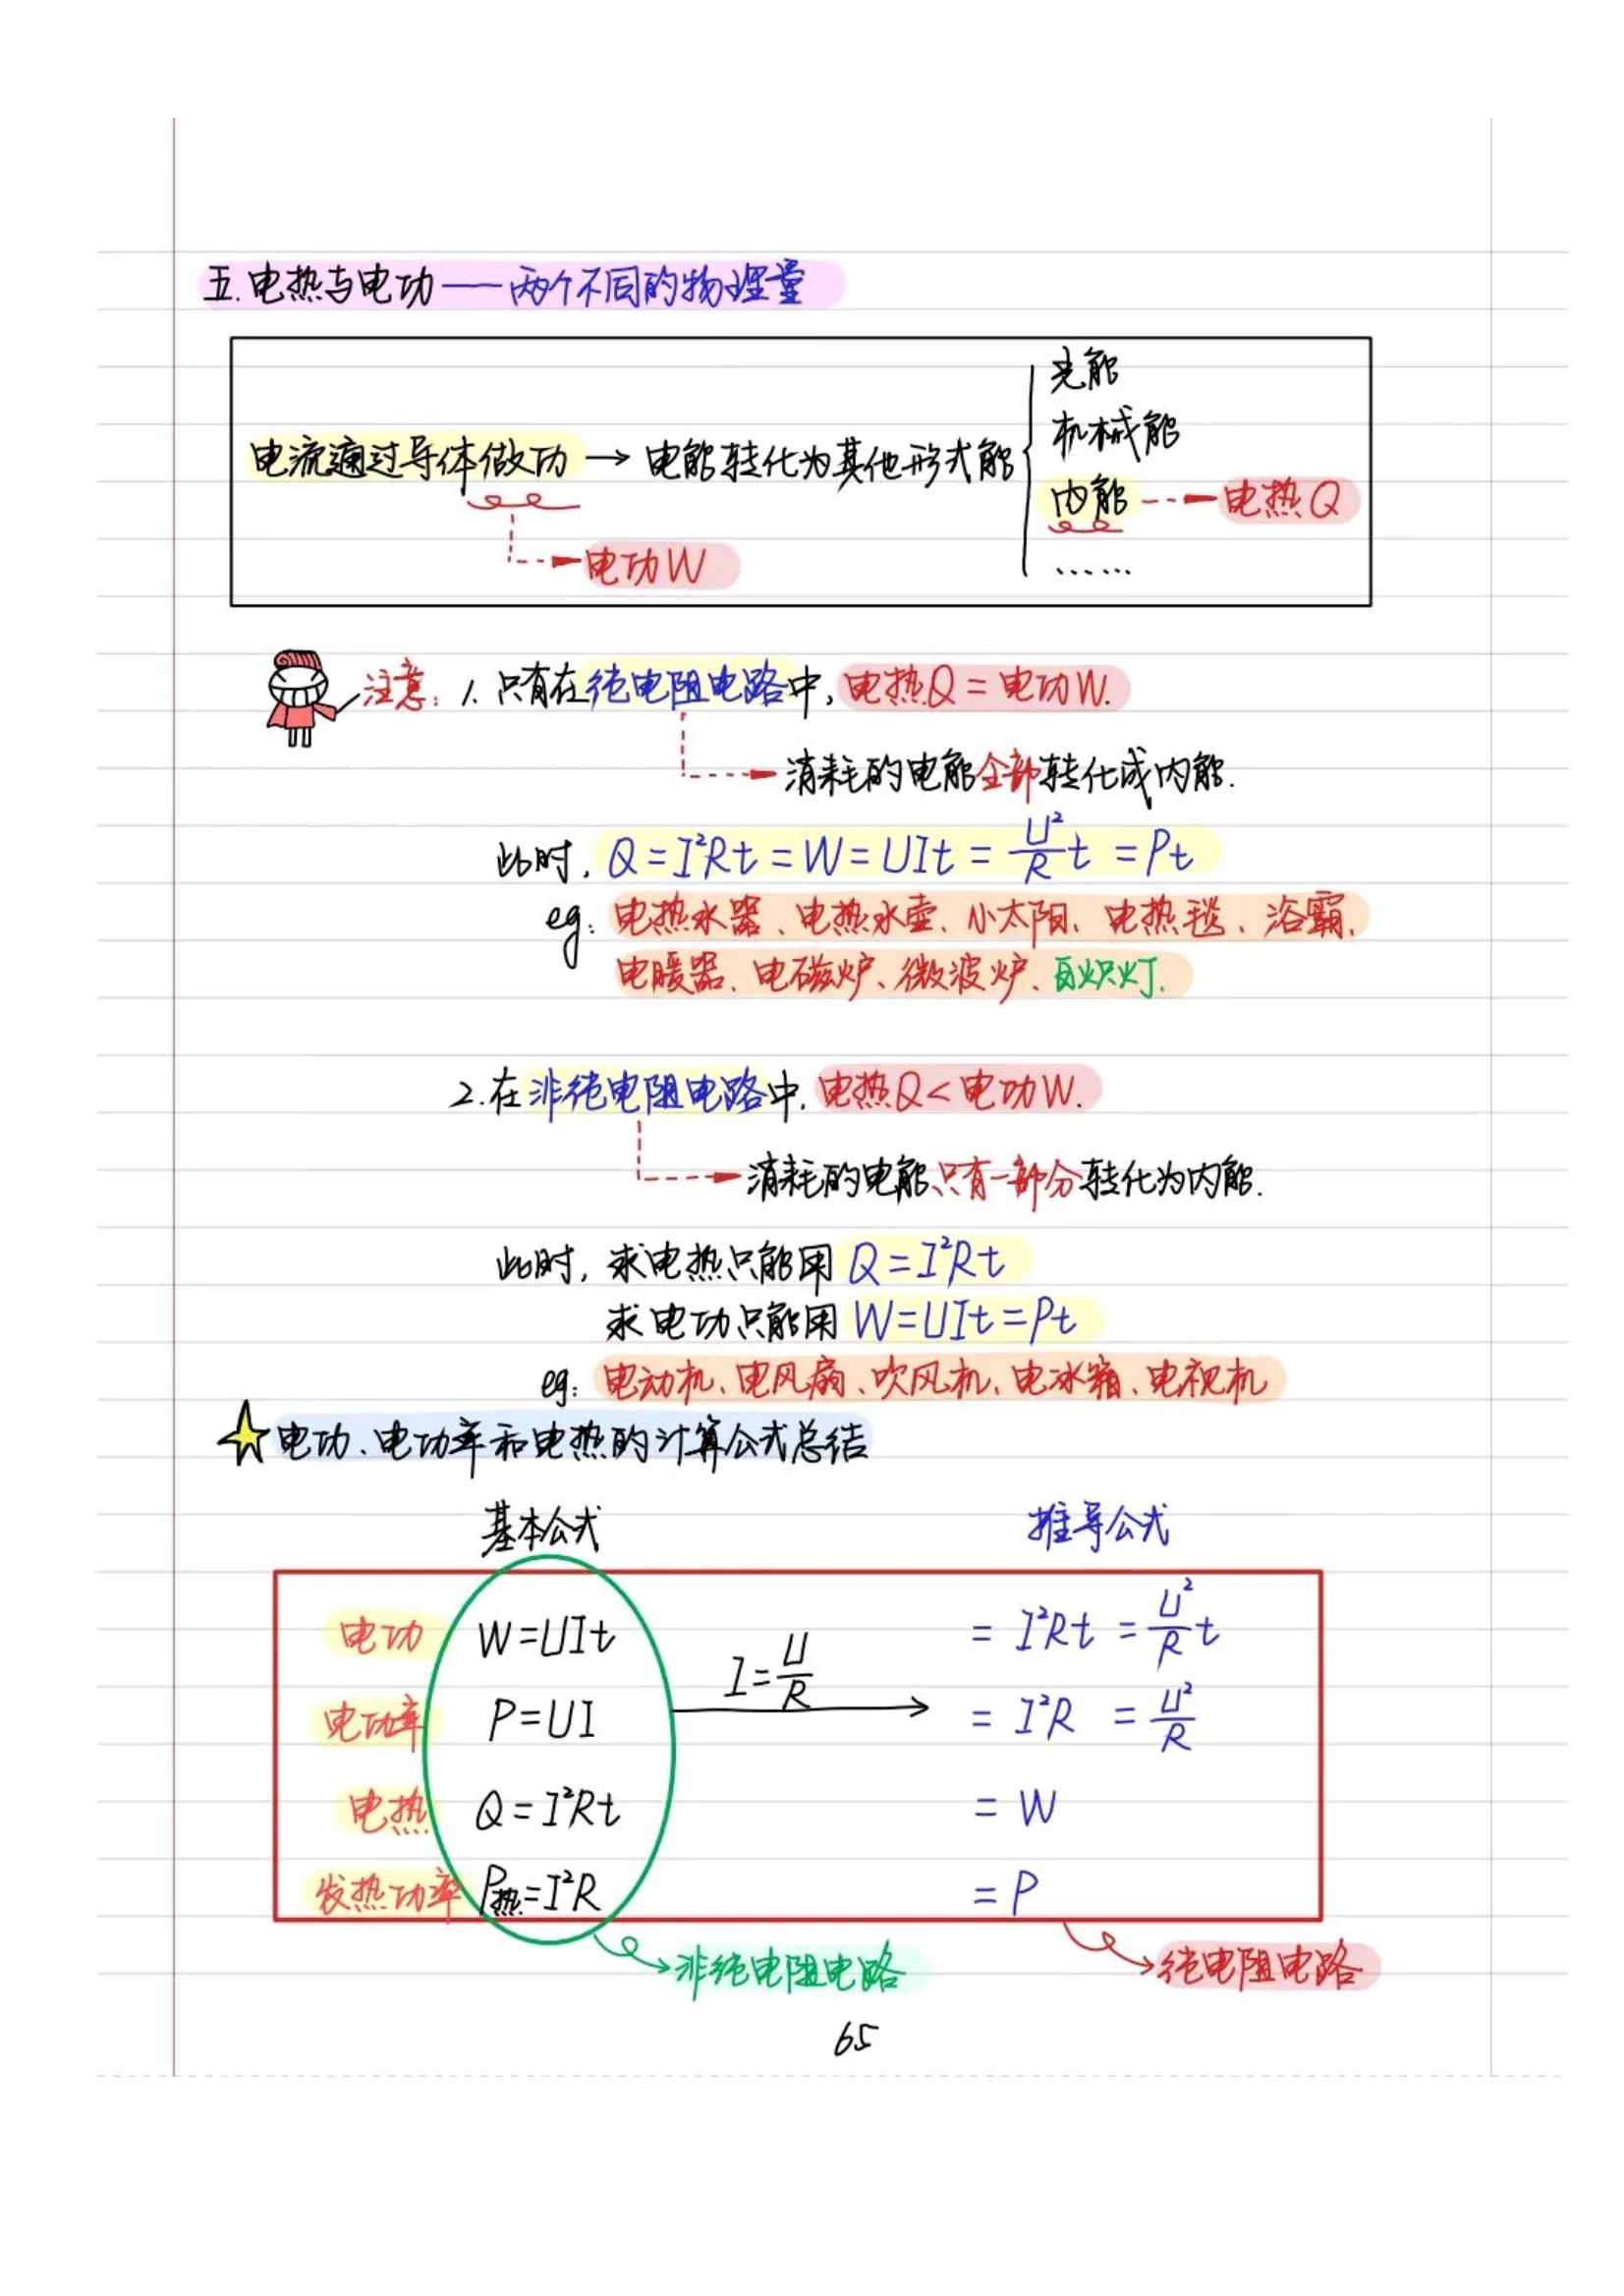 五.电热与电功——两个不同的物理量
光能
机械能
电流通过导体做功→电能转化为其他形式能
内能 电热Q
电功W
……
注意:1.只有在纯电阻电路中,电热Q=电功W.
消耗的电能全部转化成内能.
此时,Q=I²Rt=W=UIt=U²/R t=Pt
eg:电热水器、电热水壶、小太阳、电热毯、浴霸、
电暖器、电磁炉、微波炉、白炽灯.
2.在非纯电阻电路中,电热Q<电功W.
消耗的电能只有一部分转化为内能.
此时,求电热只能用Q=I²Rt
求电功只能用W=UIt=Pt
eg:电动机、电风扇、吹风机、电冰箱、电视机
电功、电功率和电热的计算公式总结
基本公式 推导公式
电功 W=UIt I=U/R =I²Rt=U²/R t
电功率 P=UI =I²R=U²/R
电热 Q=I²Rt =W
发热功率 P热=I²R =P
非纯电阻电路 纯电阻电路
65